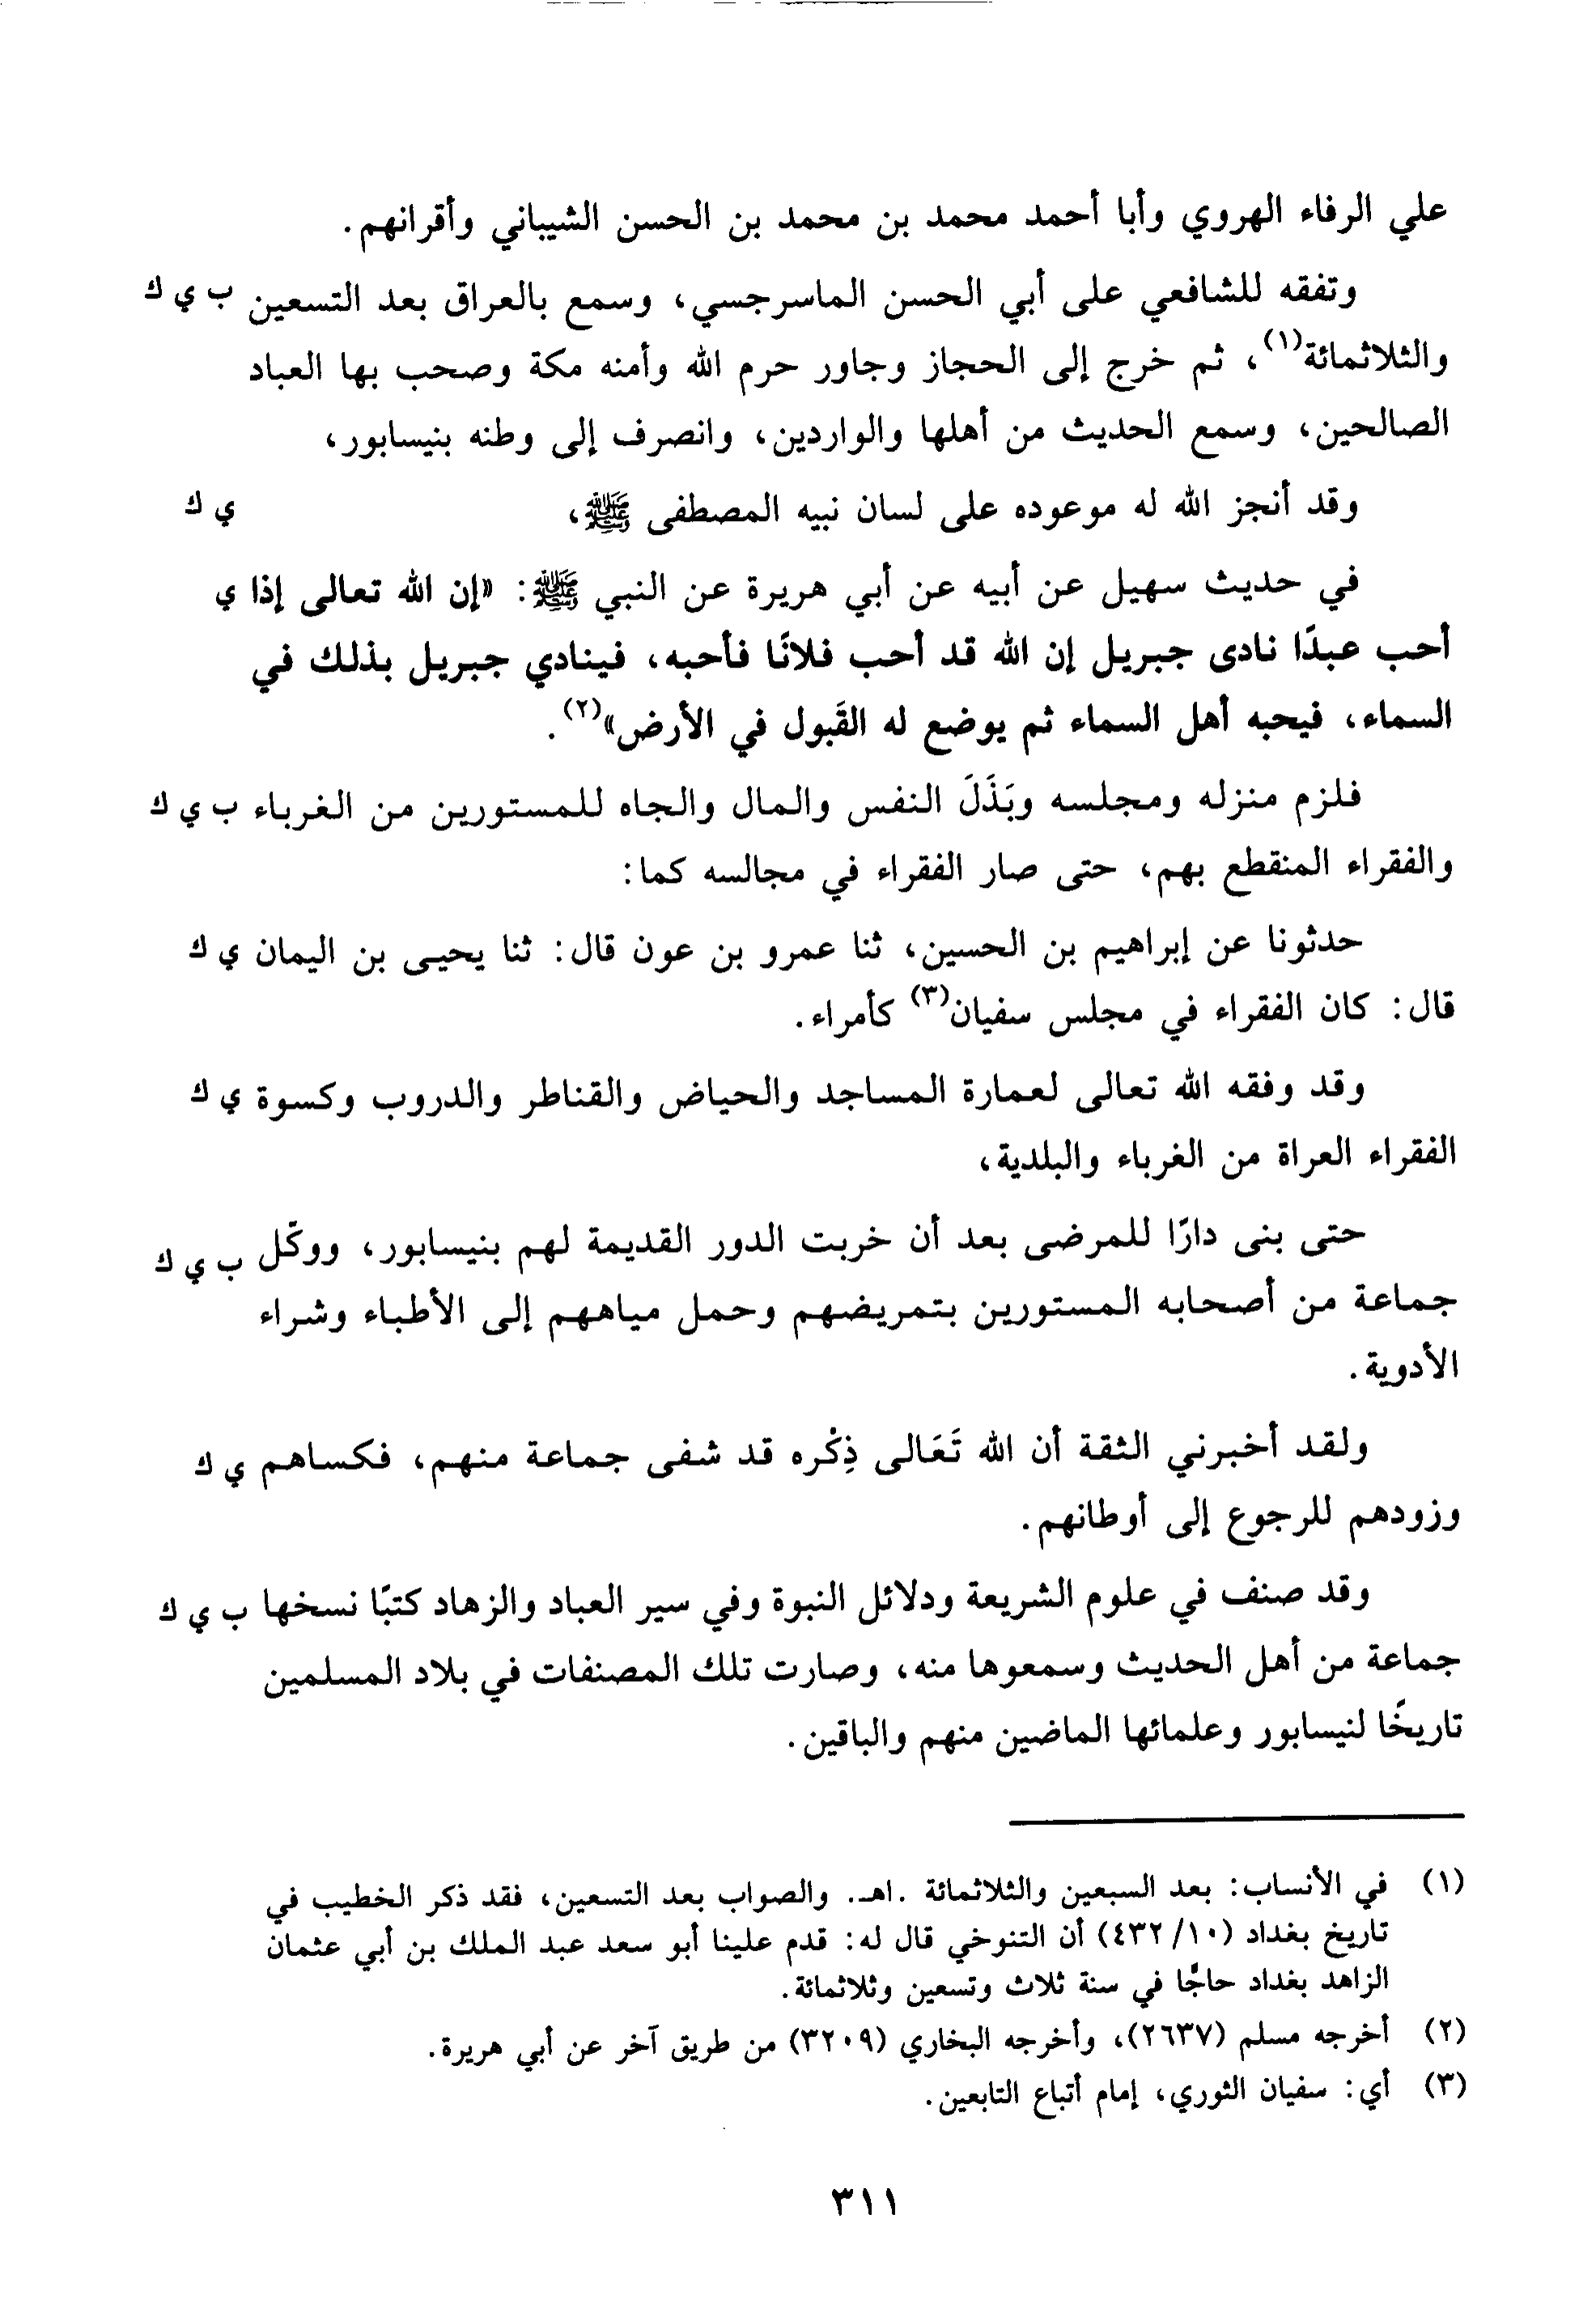 علي الرفاء الهروي وأبا أحمد محمد بن محمد بن الحسن الشيباني وأقرانهم.
وتفقه للشافعي على أبي الحسن الماسرجسي، وسمع بالعراق بعد التسعين ب ي ك
والثلاثمائة(١)، ثم خرج إلى الحجاز وجاور حرم الله وأمنه مكة وصحب بها العباد
الصالحين، وسمع الحديث من أهلها والواردين، وانصرف إلى وطنه بنيسابور،
وقد أنجز الله له موعوده على لسان نبيه المصطفى ﷺ، ي ك
في حديث سهيل عن أبيه عن أبي هريرة عن النبي ﷺ: «إن الله تعالى إذا ي
أحب عبدًا نادى جبريل إن الله قد أحب فلانًا فأحبه، فينادي جبريل بذلك في
السماء، فيحبه أهل السماء ثم يوضع له القَبول في الأرض»(٢).
فلزم منزله ومجلسه وبَذَلَ النفس والمال والجاه للمستورين من الغرباء ب ي ك
والفقراء المنقطع بهم، حتى صار الفقراء في مجالسه كما:
حدثونا عن إبراهيم بن الحسين، ثنا عمرو بن عون قال: ثنا يحيى بن اليمان ي ك
قال: كان الفقراء في مجلس سفيان(٣) كأمراء.
وقد وفقه الله تعالى لعمارة المساجد والحياض والقناطر والدروب وكسوة ي ك
الفقراء العراة من الغرباء والبلدية،
حتى بنى دارًا للمرضى بعد أن خربت الدور القديمة لهم بنيسابور، ووكّل ب ي ك
جماعة من أصحابه المستورين بتمريضهم وحمل مياههم إلى الأطباء وشراء
الأدوية.
ولقد أخبرني الثقة أن الله تَعَالى ذِكْره قد شفى جماعة منهم، فكساهم ي ك
وزودهم للرجوع إلى أوطانهم.
وقد صنف في علوم الشريعة ودلائل النبوة وفي سير العباد والزهاد كتبًا نسخها ب ي ك
جماعة من أهل الحديث وسمعوها منه، وصارت تلك المصنفات في بلاد المسلمين
تاريخًا لنيسابور وعلمائها الماضين منهم والباقين.
(١) في الأنساب: بعد السبعين والثلاثمائة .اهـ. والصواب بعد التسعين، فقد ذكر الخطيب في
تاريخ بغداد (٤٣٢/١٠) أن التنوخي قال له: قدم علينا أبو سعد عبد الملك بن أبي عثمان
الزاهد بغداد حاجًّا في سنة ثلاث وتسعين وثلاثمائة.
(٢) أخرجه مسلم (٢٦٣٧)، وأخرجه البخاري (٣٢٠٩) من طريق آخر عن أبي هريرة.
(٣) أي: سفيان الثوري، إمام أتباع التابعين.
٣١١